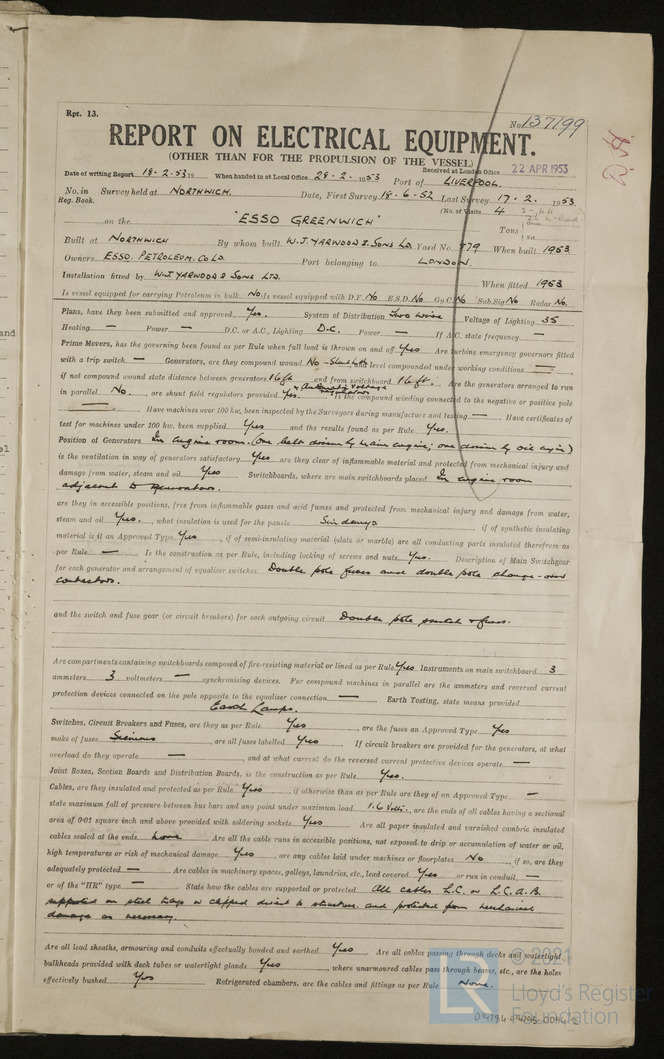 Rpt. 13.
No. 137199
REPORT ON ELECTRICAL EQUIPMENT.
(OTHER THAN FOR THE PROPULSION OF THE VESSEL)
Date of writing Report 18-2-53 19 When handed in at Local Office 28-2-1953 Received at London Office 22 APR 1953
Port of LIVERPOOL.
No. in Reg. Book. Survey held at NORTHWICH. Date, First Survey 18-6-52 Last Survey 17-2-1953
(No. of Visits 4
on the "ESSO GREENWICH" Tons
Built at NORTHWICH By whom built W.J. YARWOOD & SONS LD Yard No. 879 When built 1953
Owners ESSO PETROLEUM CO LD Port belonging to LONDON.
Installation fitted by W.J. YARWOOD & SONS LTD. When fitted 1953
Is vessel equipped for carrying Petroleum in bulk No. Is vessel equipped with D.F. No E.S.D. No Gy.C. No Sub.Sig. No Radar No.
Plans, have they been submitted and approved Yes. System of Distribution Two wire Voltage of Lighting 35
Heating — Power — D.C. or A.C., Lighting D-C. Power — If A.C. state frequency —
Prime Movers, has the governing been found as per Rule when full load is thrown on and off Yes Are turbine emergency governors fitted
with a trip switch — Generators, are they compound wound No - Shunt and level compounded under working conditions —
if not compound wound state distance between generators 16 ft and from switchboard 16 ft. Are the generators arranged to run
in parallel No. are shunt field regulators provided Yes. & Automatic Voltage Regulators Is the compound winding connected to the negative or positive pole
— Have machines over 100 kw. been inspected by the Surveyors during manufacture and testing — Have certificates of
test for machines under 100 kw. been supplied Yes and the results found as per Rule Yes.
Position of Generators In engine room. (one belt driven by main engine; one driven by oil engine)
is the ventilation in way of generators satisfactory Yes are they clear of inflammable material and protected from mechanical injury and
damage from water, steam and oil Yes Switchboards, where are main switchboards placed In engine room
adjacent to generators.
are they in accessible positions, free from inflammable gases and acid fumes and protected from mechanical injury and damage from water,
steam and oil Yes. what insulation is used for the panels Sindanyo if of synthetic insulating
material is it an Approved Type Yes if of semi-insulating material (slate or marble) are all conducting parts insulated therefrom as
per Rule — Is the construction as per Rule, including locking of screws and nuts Yes. Description of Main Switchgear
for each generator and arrangement of equaliser switches Double pole fuses and double pole change-over
contactors.
and the switch and fuse gear (or circuit breakers) for each outgoing circuit Double pole switch & fuses.
Are compartments containing switchboards composed of fire-resisting material or lined as per Rule Yes Instruments on main switchboard 3
ammeters 3 voltmeters — synchronising devices. For compound machines in parallel are the ammeters and reversed current
protection devices connected on the pole opposite to the equaliser connection — Earth Testing, state means provided
Earth Lamps.
Switches, Circuit Breakers and Fuses, are they as per Rule Yes are the fuses an Approved Type Yes
make of fuses Siemens are all fuses labelled Yes If circuit breakers are provided for the generators, at what
overload do they operate — and at what current do the reversed current protective devices operate —
Joint Boxes, Section Boards and Distribution Boards, is the construction as per Rule Yes.
Cables, are they insulated and protected as per Rule Yes if otherwise than as per Rule are they of an Approved Type —
state maximum fall of pressure between bus bars and any point under maximum load 1.6 Volts. are the ends of all cables having a sectional
area of 0·01 square inch and above provided with soldering sockets Yes Are all paper insulated and varnished cambric insulated
cables sealed at the ends None Are all the cable runs in accessible positions, not exposed to drip or accumulation of water or oil,
high temperatures or risk of mechanical damage Yes are any cables laid under machines or floorplates No if so, are they
adequately protected — Are cables in machinery spaces, galleys, laundries, etc., lead covered Yes or run in conduit —
or of the "HR" type — State how the cables are supported or protected All cables L.C. or L.C.A.B.
supported on steel trays or clipped direct to structure and protected from mechanical
damage as necessary.
Are all lead sheaths, armouring and conduits effectually bonded and earthed Yes Are all cables passing through decks and watertight
bulkheads provided with deck tubes or watertight glands Yes where unarmoured cables pass through beams, etc., are the holes
effectively bushed Yes Refrigerated chambers, are the cables and fittings as per Rule None.
© 2021
LR
Lloyd's Register
Foundation